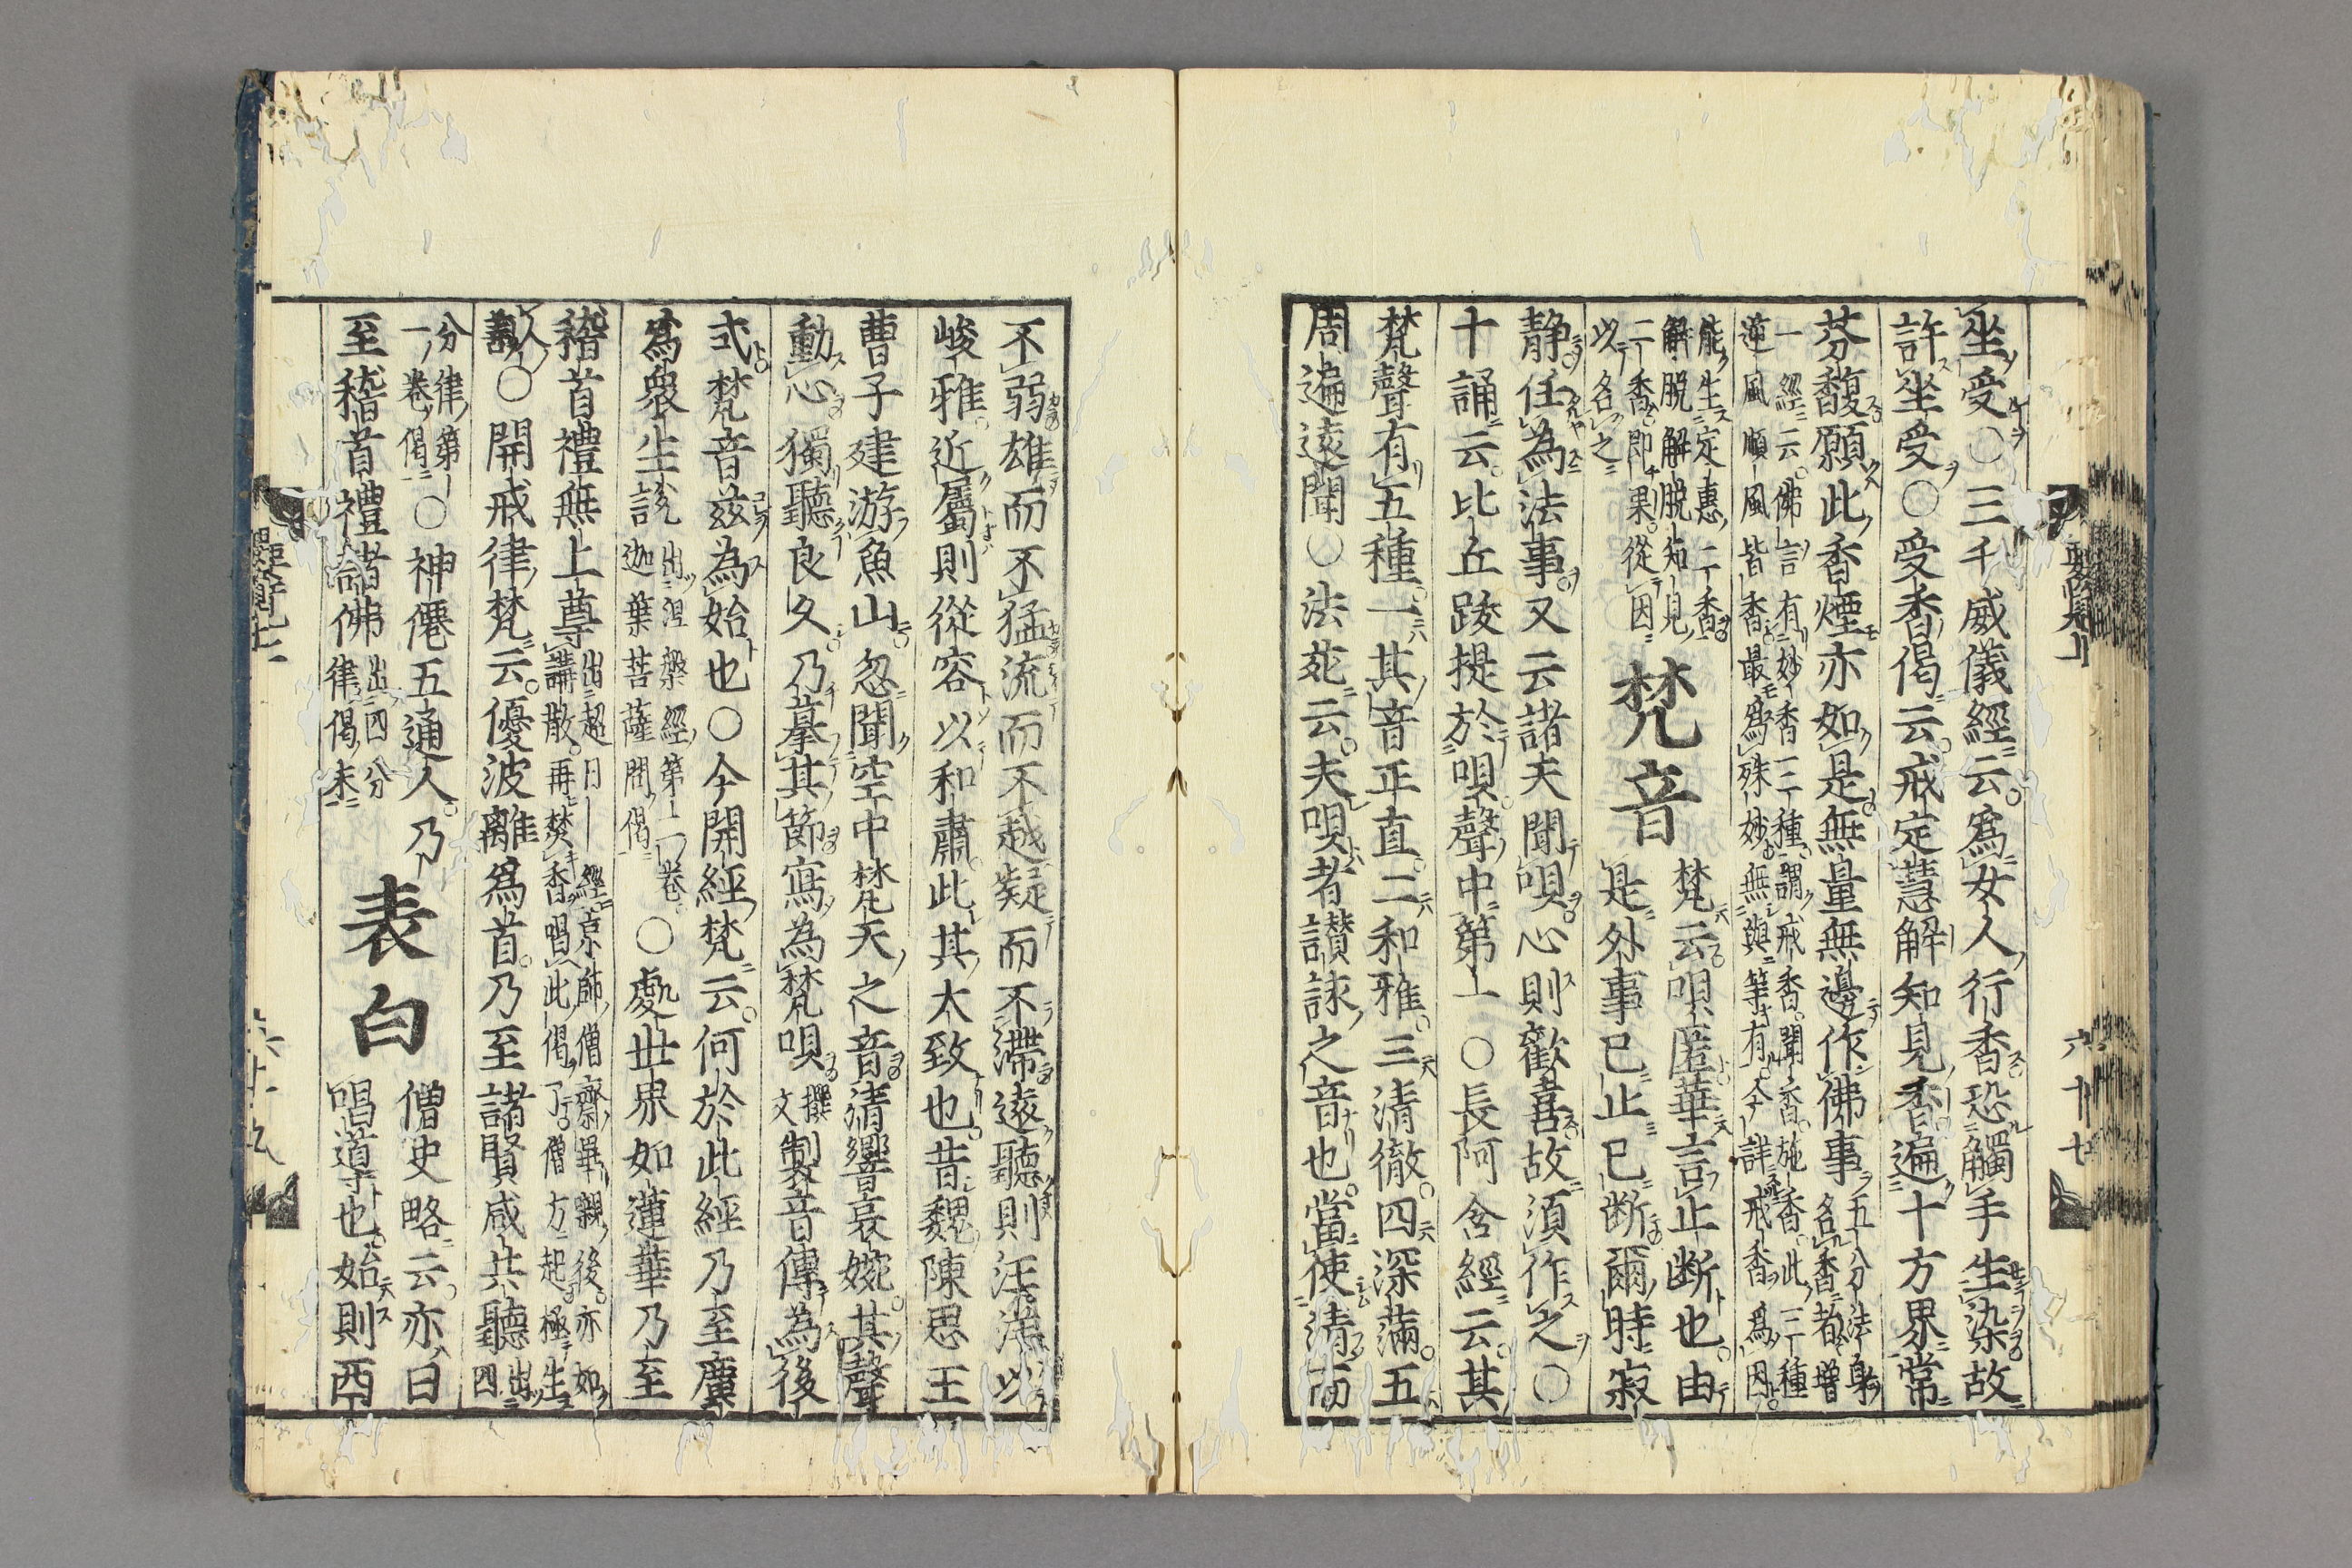 坐受〇三千威儀經云爲女人行香恐觸手生染故
許坐受〇受香偈云戒定慧解知見香遍十方界常
芬馥願此香煙亦如是無量無邊作佛事五分法身
名香者增
一經云佛言有妙香三種謂戒香聞香施香此三種
逆風順風皆香最爲殊妙無與等有今詳戒香爲因
能生定惠二香
解脱解脱知見
二香即果從因
以名之
梵音
梵云唄匿華言止断也由
是外事已止已断爾時寂
静任為法事又云諸夫聞唄心則歡喜故須作之〇
十誦云比丘跋提於唄聲中第一〇長阿含經云其
梵聲有五種一其音正直二和雅三清徹四深滿五
周遍遠聞〇法苑云夫唄者讃詠之音也當使清而
不弱雄而不猛流而不越凝而不滯遠聽則汪洋以
峻雅近屬則從容以和肅此其大致也昔魏陳思王
曹子建游魚山忽聞空中梵天之音清響哀婉其聲
動心獨聽良久乃摹其節寫為梵唄撰文製音傳為後
式梵音兹為始也〇今開經梵云何於此經乃至廣
爲衆生説出涅槃經第二卷
迦葉菩薩問偈〇處世界如蓮華乃至
稽首禮無上尊出超日經京師僧齋畢嚫後亦如
講散再焚香唄此偈了僧方起極生
人善〇開戒律梵云優波離爲首乃至諸賢咸共聽出四
分律第
一卷偈〇神僊五通人乃
至稽首禮諸佛出四分
律偈末
表白
僧史略云亦曰
唱導也始則西
六十七